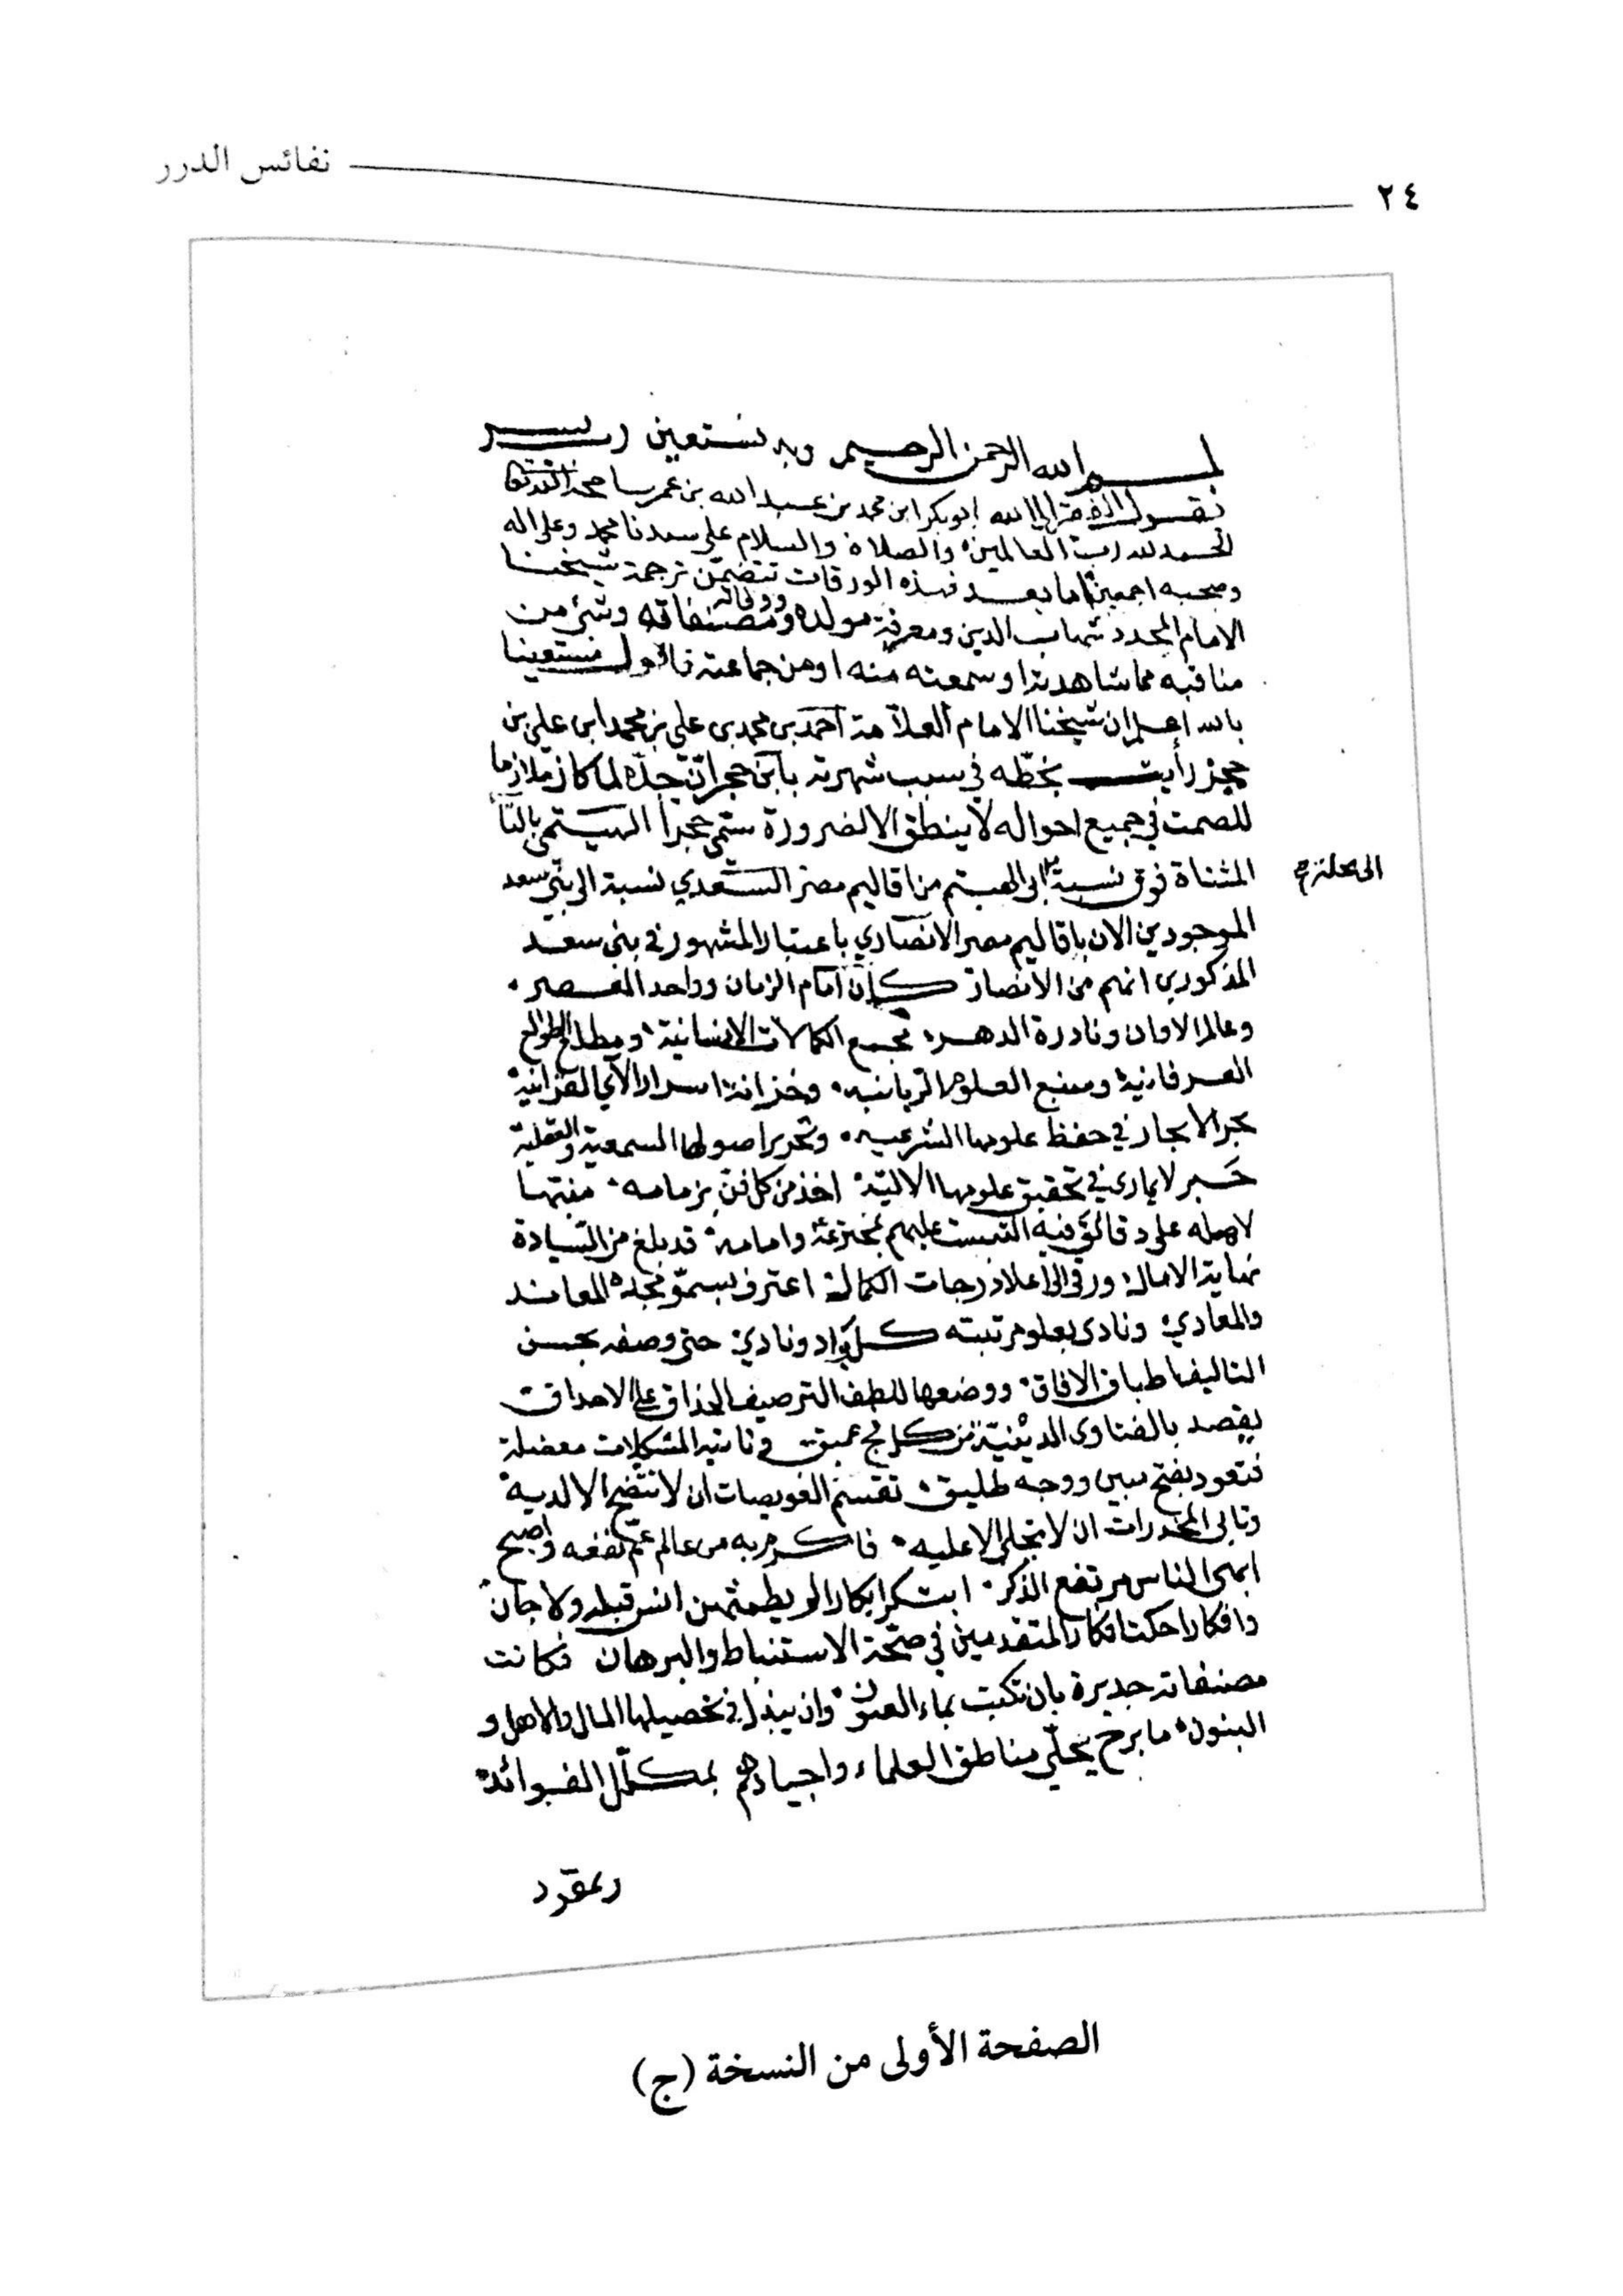 ٢٤
نفائس الدرر
بسم الله الرحمن الرحيم وبه نستعين رب يسر
نقول الفقير الى الله ابو بكر ابن محمد بن عبد الله بن عمر با
الحمد لله رب العالمين والصلاة والسلام على سيدنا محمد وعلى اله
وصحبه اجمعين اما بعد فهذه الورقات تتضمن ترجمة شيخنا
الامام المجدد شهاب الدين ومعرفة مولده ووفاته ومصنفاته وشئ من
مناقبه مما شاهدته او سمعته منه او من جماعته فاقول مستعينا
بالله اعلم ان شيخنا الامام العلامة احمد بن محمد بن علي بن محمد ابن علي بن
حجر رأيت بخطه في سبب شهرته بابن حجر ان جده لما كان ملازما
للصمت في جميع احواله لا ينطق الا لضرورة سمي حجرا الهيتمي بالتاء
المثناة فوق نسبة الى الهيتم من اقاليم مصر السعدي نسبة الى بني سعد
الى محلة
الموجودين الان باقاليم مصر الانصاري باعتبار المشهور في بني سعد
المذكورين انهم من الانصار كان امام الزمان وواحد العصر
وعالم الاوان ونادرة الدهر مجمع الكمالات الانسانية ومطلع الطوالع
العرفانية ومنبع العلوم الربانية وخزانة اسرار الآي القرانية
بحر الابحار في حفظ علومها الشرعية وتحرير اصولها السمعية والعقلية
حبر لا يمارى في تحقيق علومها الالية اخذ من كل فن بزمامه منبها
لاهله على دقائق فيه التبست عليهم بمخترعة وامامة قد بلغ من السيادة
نهاية الامال ورقى الى اعلا درجات الكمال اعترف بسمو مجده المعاند
والمعادي ونادى بعلو مرتبته كل واد ونادي حتى وصفه بحسن
التاليف اطباق الافاق ووضعها للطف الترصيف الحذاق على الاحداق
يقصد بالفتاوى الدينية من كل فج عميق فتاتيه المشكلات معضلة
فتعود بفتح مبين ووجه طليق تقسم العويصات ان لا تتضح الا لديه
وتابى المخدرات ان لا تجلى الا عليه فاكرم به من عالم عم نفعه واصبح
ابهى الناس مرتفع الذكر ابتكر ابكارا لم يطمثهن انس قبله ولا جان
وافكارا حكت افكار المتقدمين في صحة الاستنباط والبرهان فكانت
مصنفاته جديرة بان تكتب بماء العيون وان يبذل في تحصيلها المال والاهل و
البنون ما برح يحلي مناطق العلماء واجيادهم بمكلل الفوائد
الصفحة الأولى من النسخة (ج)